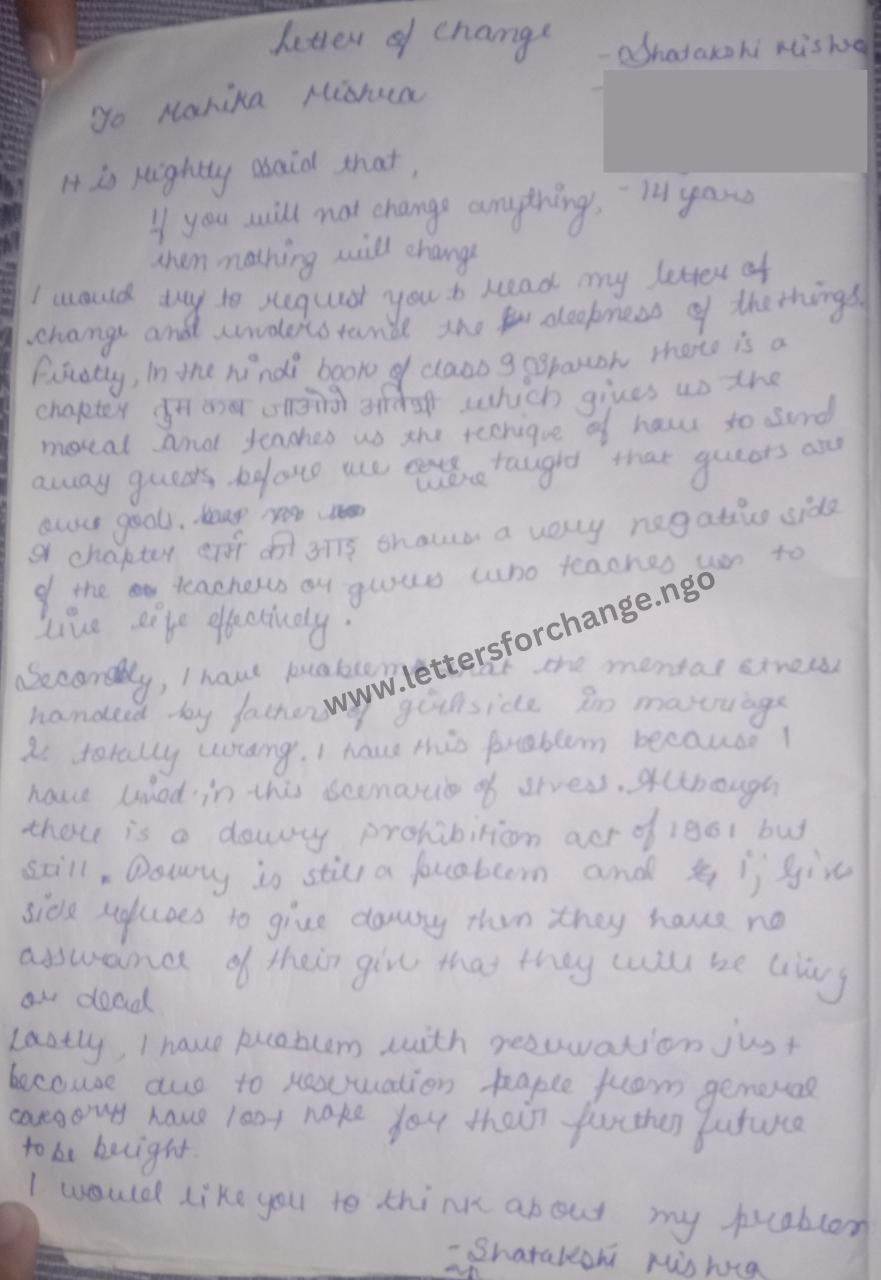 Letter of Change
- Shatakshi Mishra
To Manika Mishra
It is rightly said that,
If you will not change anything, - 14 years
then nothing will change
I would try to request you to read my letter of
change and understand the deepness of the things.
Firstly, In the hindi book of class 9 Sparsh there is a
chapter तुम कब जाओगे अतिथी which gives us the
moral and teaches us the technique of how to send
away guests, before we were taught that guests are
our gods.
A chapter धर्म की आड़ shows a very negative side
of the teachers or gurus who teaches us to
live life effectively.
www.lettersforchange.ngo
Secondly, I have problem that the mental stress
handled by fathers of girl side in marriage
is totally wrong. I have this problem because I
have lived in this scenario of stress. Although
there is a dowry prohibition act of 1961 but
still. Dowry is still a problem and if girl
side refuses to give dowry then they have no
assurance of their girl that they will be living
or dead
Lastly, I have problem with reservation just
because due to reservation people from general
category have lost hope for their further future
to be bright.
I would like you to think about my problem
- Shatakshi Mishra